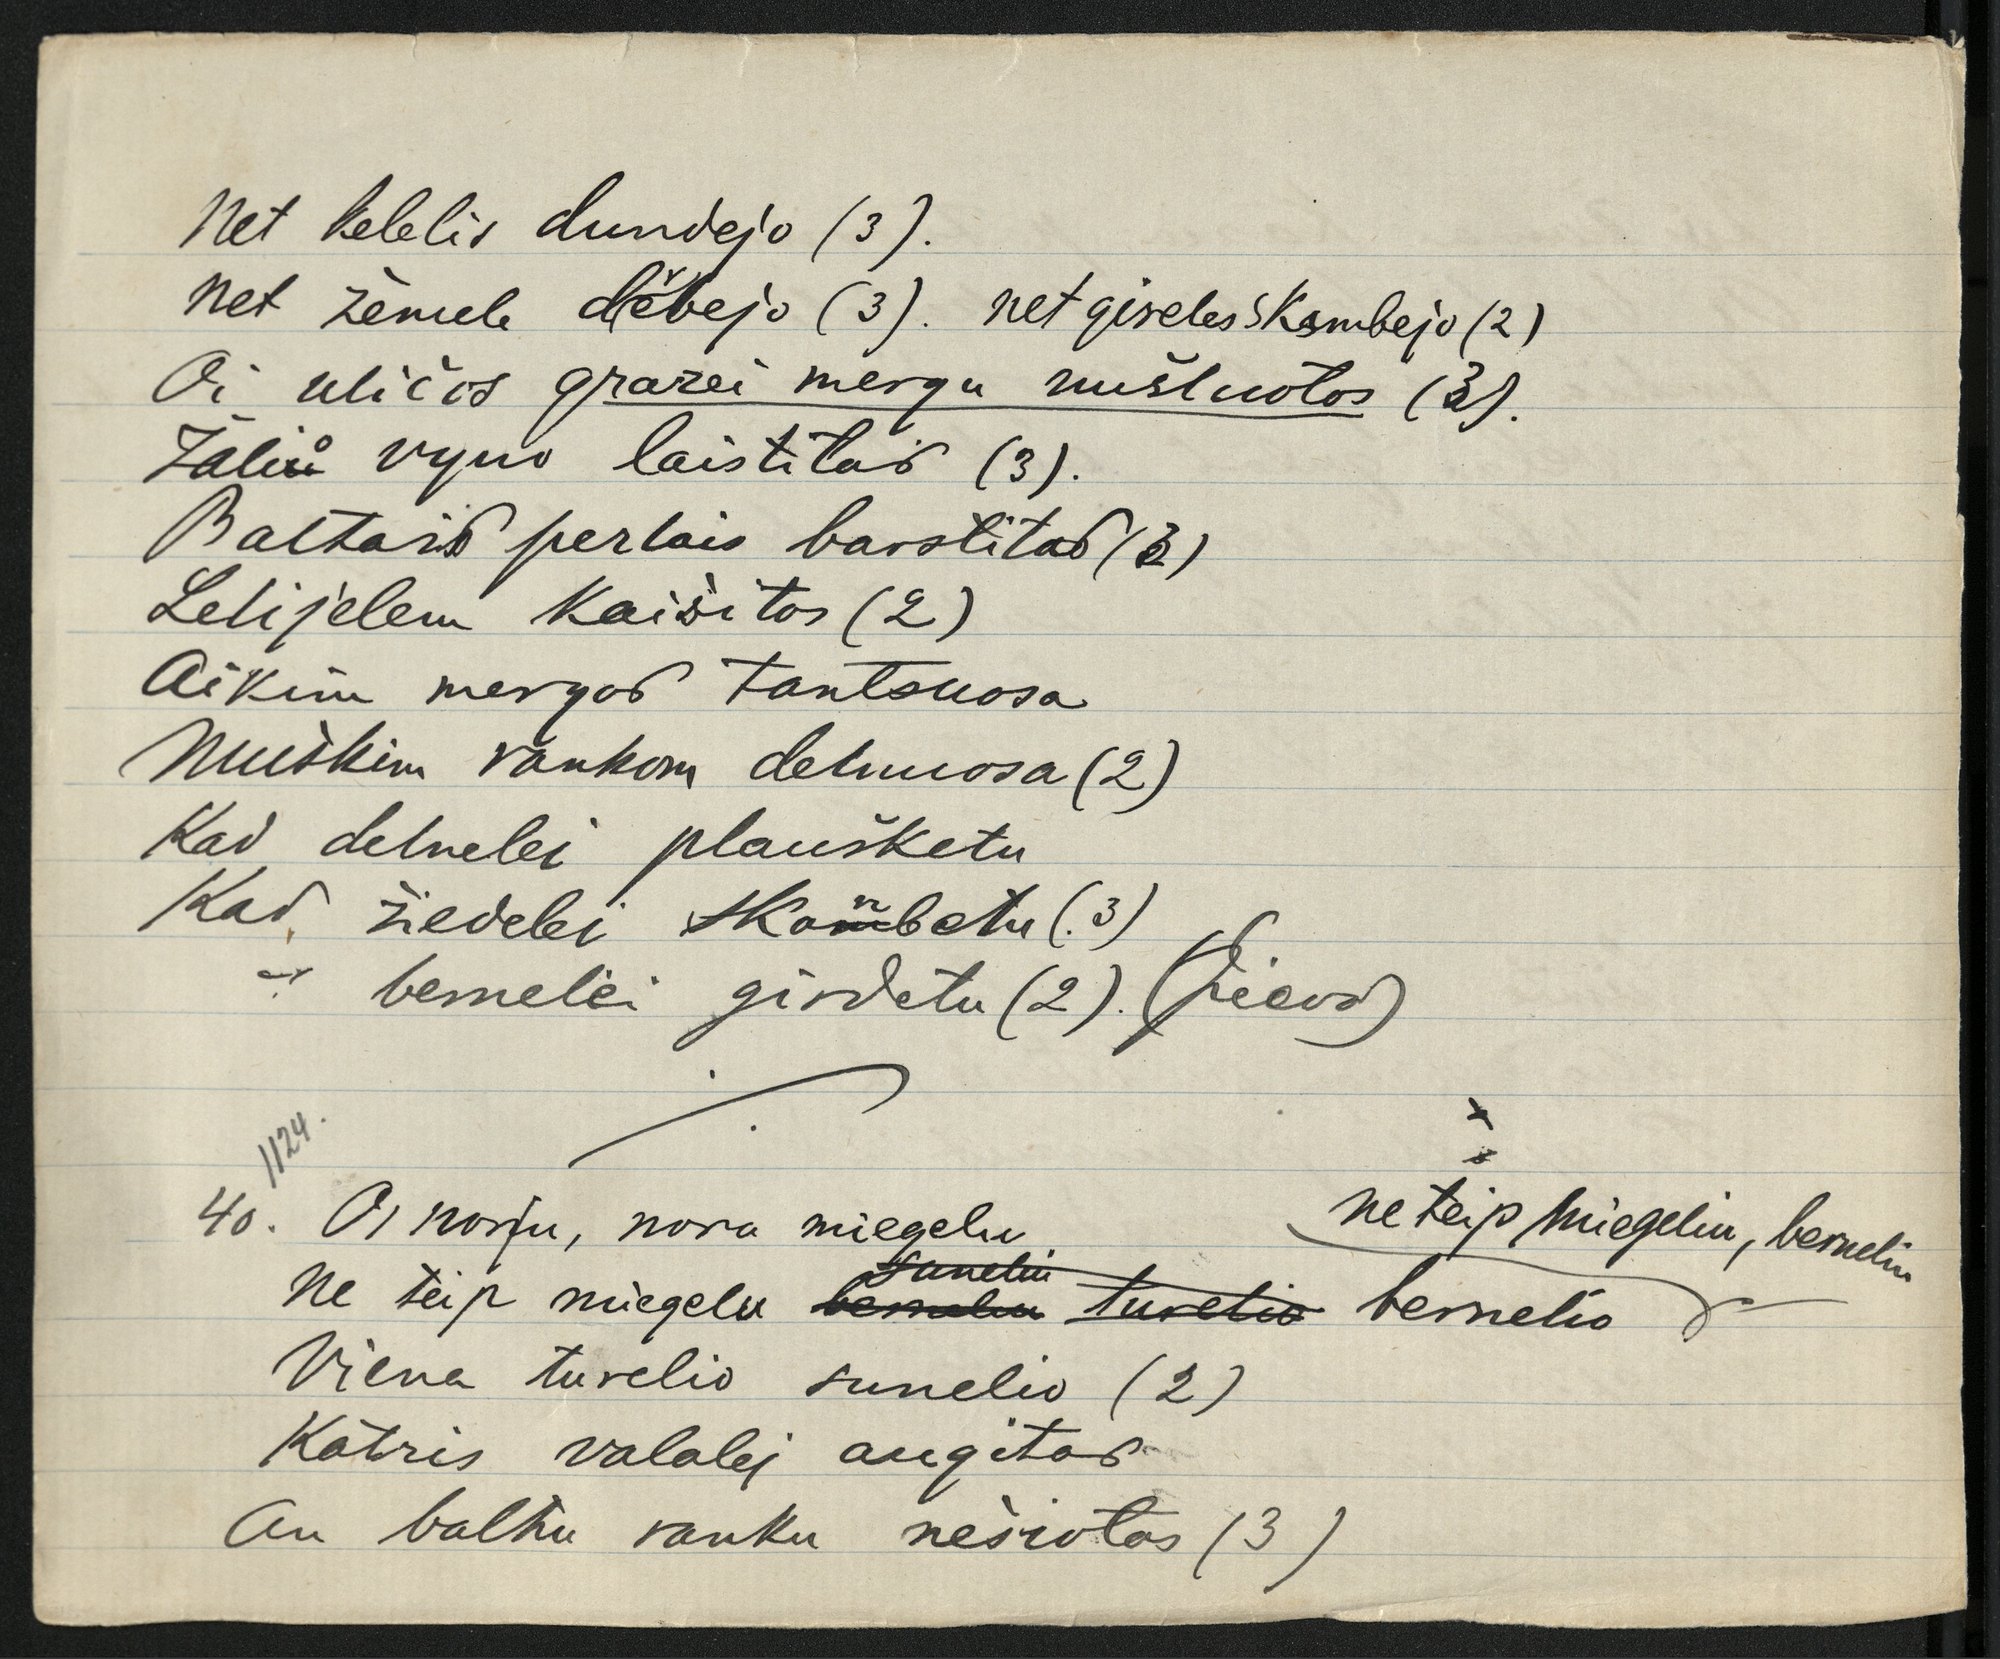 Net kelelis dundejo (3).
Net žemele dėbejo (3). net girelesskambejo (2)
Oi uličos grazei mergu nušluotos (3).
Žaliu vyno laistitas (3).
Baltais perlais barstitas (3)
Lelijelem kaišitos (2)
Aikim mergos tantsuosa
Muškim rankom delnuosa (2)
Kad delnelei plaušketu
Kad žiedelei skambetu (3)
-"- bernelei girdetu (2). (Pieva)
1124.
40. Oi noriu, nora miegelu
ne teip miegeliu, berneliu
suneliu
Ne teip miegelu bernelu turelio bernelio
Viena turelio sunelio (2)
Katris valalej augitas
An baltu ranku nešiotas (3)